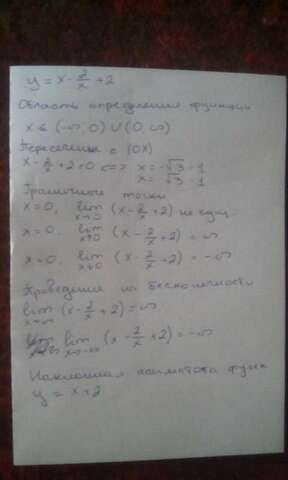 y = x - 2/x + 2
Область определения функции
x ∈ (-∞, 0) ∪ (0, ∞)
Пересечение с (OX)
x - 2/x + 2 = 0 <=> x = -√3 - 1
x = √3 - 1
Граничные точки
x = 0, lim x→0 (x - 2/x + 2) не сущ.
x = 0. lim (x - 2/x + 2) = ∞
x = 0. lim (x - 2/x + 2) = -∞
Поведение на бесконечности
lim x→∞ (x - 2/x + 2) = ∞
lim x→-∞ (x - 2/x + 2) = -∞
Наклонная асимптота функ
y = x + 2